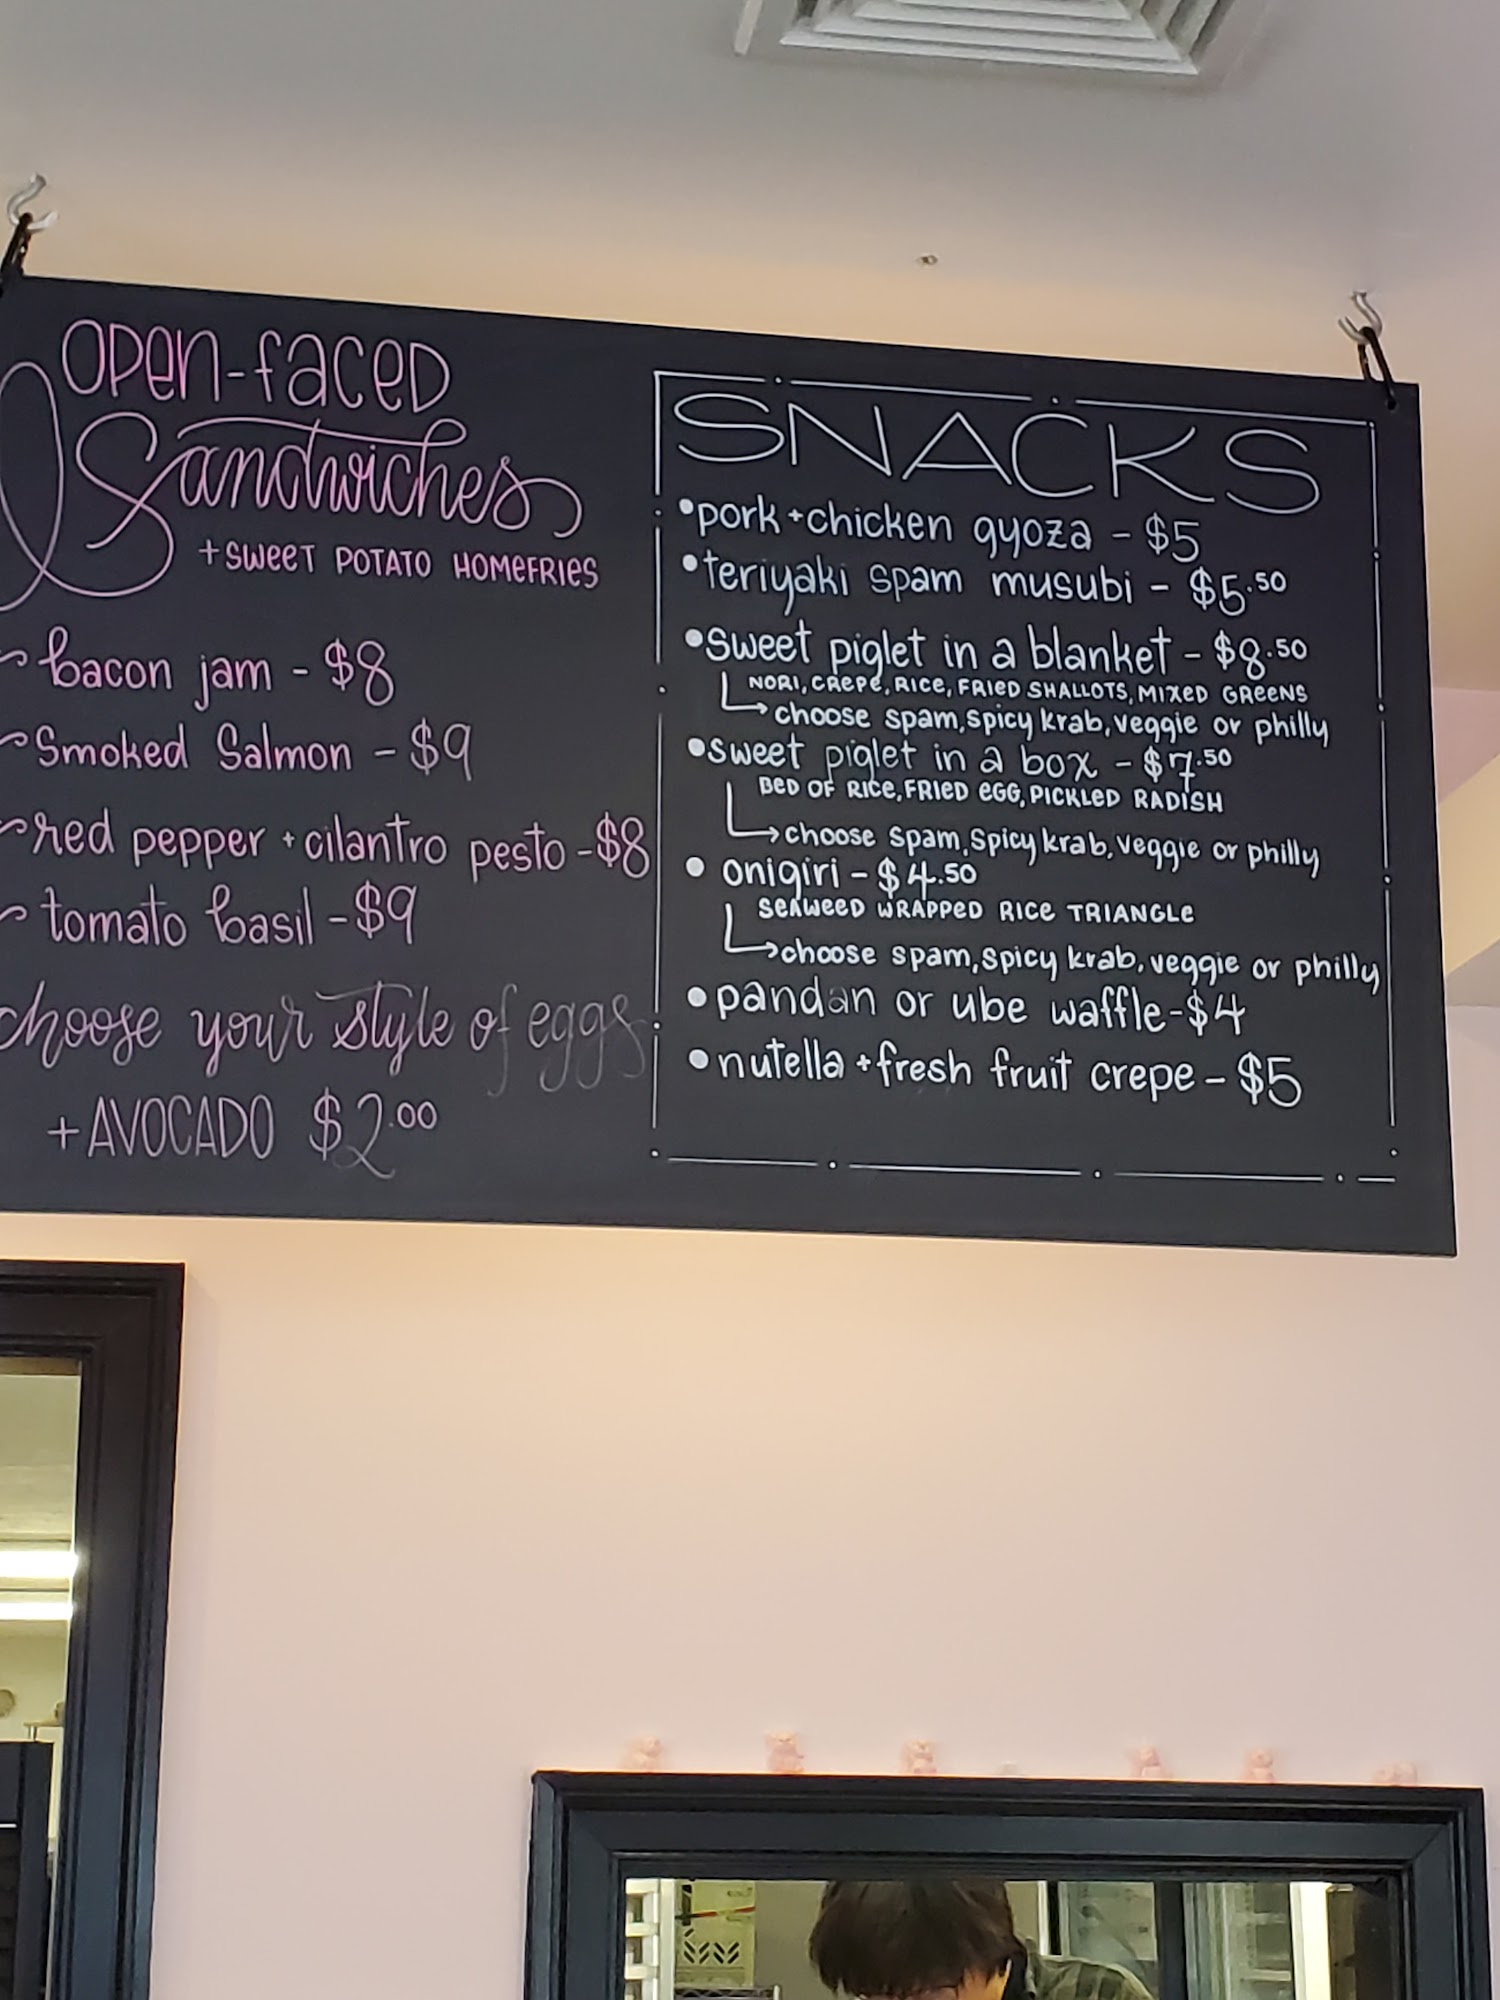 open-faced
Sandwiches
+ sweet potato homefries
bacon jam - $8
Smoked Salmon - $9
red pepper + cilantro pesto - $8
tomato basil - $9
choose your style of eggs
+ AVOCADO $2.00
SNACKS
• pork + chicken gyoza - $5
• teriyaki spam musubi - $5.50
• sweet piglet in a blanket - $8.50
NORI, CREPE, RICE, FRIED SHALLOTS, MIXED GREENS
→ choose spam, spicy krab, veggie or philly
• sweet piglet in a box - $7.50
BED OF RICE, FRIED EGG, PICKLED RADISH
→ choose spam, spicy krab, veggie or philly
• onigiri - $4.50
SEAWEED WRAPPED RICE TRIANGLE
→ choose spam, spicy krab, veggie or philly
• pandan or ube waffle - $4
• nutella + fresh fruit crepe - $5